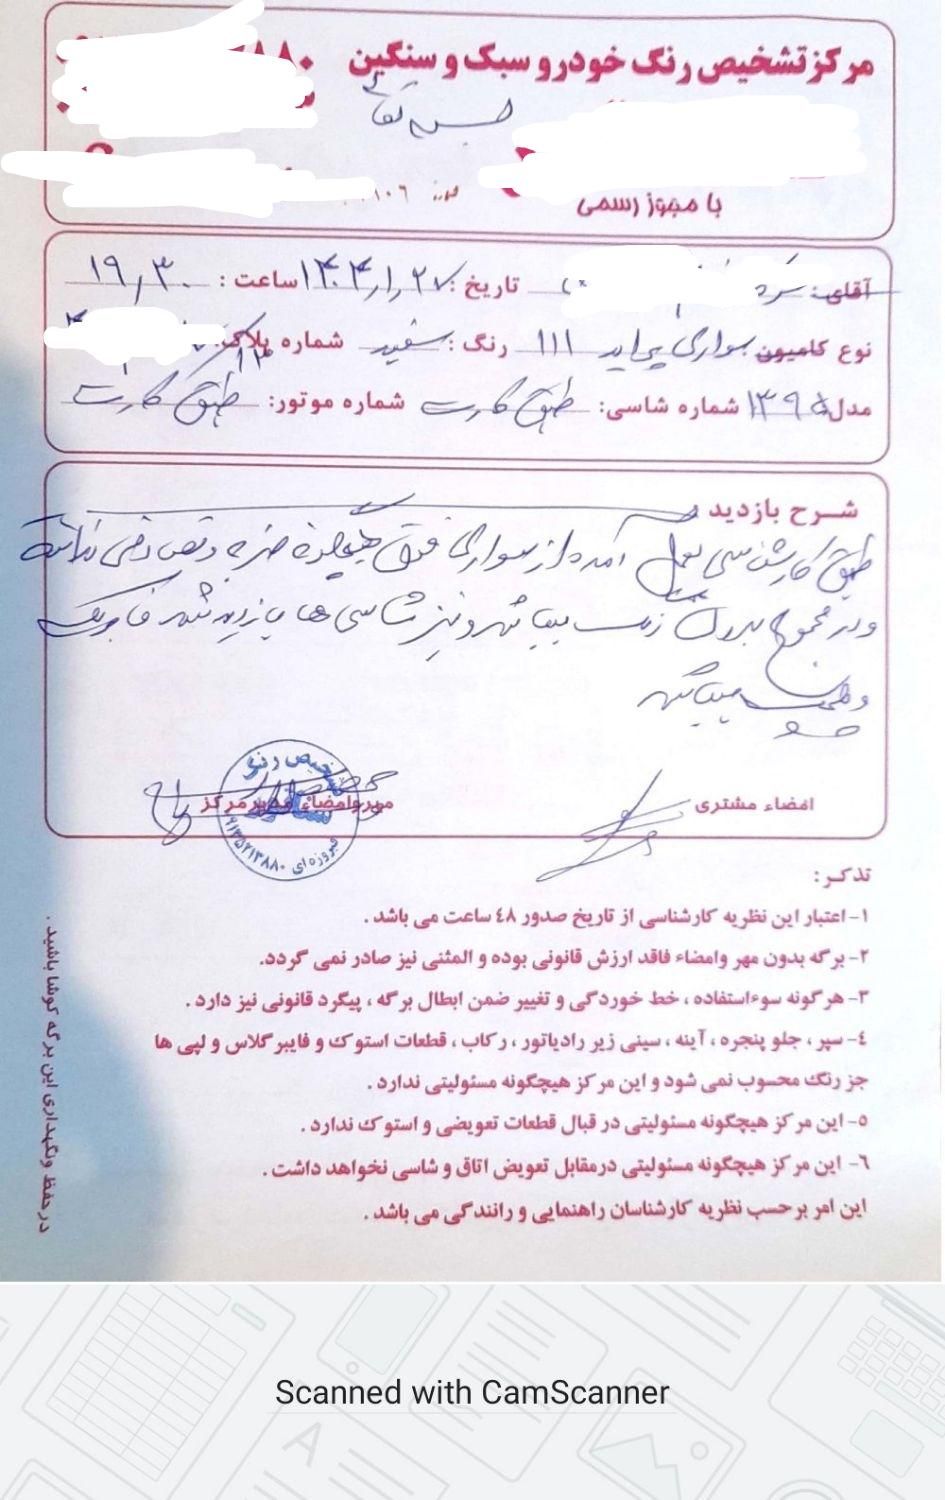 مرکز تشخیص رنگ خودرو سبک و سنگین
۸۸۰
با مجوز رسمی
آقای:
تاریخ: ۱۴۰۴/۱/۲۷ ساعت: ۱۹/۳۰
نوع کامیون سواری پراید ۱۱۱ رنگ: سفید شماره پلاک:
مدل ۱۳۹۵ شماره شاسی: طبق کارت شماره موتور: طبق کارت
شرح بازدید
طبق کارشناسی بعمل آمده از سواری فوق هیچگونه ضربه و تصادفی نداشته
و در مجموع بدون رنگ میباشد و نیز شاسی ها بازدید شد فابریک
میباشد
امضاء مشتری
مهر و امضاء مدیر مرکز
تشخیص رنگ
فیروزه‌ای ۰۹۱۳۵۲۱۳۸۸۰
تذکر:
۱- اعتبار این نظریه کارشناسی از تاریخ صدور ٤٨ ساعت می باشد .
۲- برگه بدون مهر وامضاء فاقد ارزش قانونی بوده و المثنی نیز صادر نمی گردد.
۳- هرگونه سوءاستفاده ، خط خوردگی و تغییر ضمن ابطال برگه ، پیگرد قانونی نیز دارد .
٤- سپر ، جلو پنجره ، آینه ، سینی زیر رادیاتور ، رکاب ، قطعات استوک و فایبر گلاس و لپی ها
جز رنگ محسوب نمی شود و این مرکز هیچگونه مسئولیتی ندارد .
٥- این مرکز هیچگونه مسئولیتی در قبال قطعات تعویضی و استوک ندارد .
٦- این مرکز هیچگونه مسئولیتی درمقابل تعویض اتاق و شاسی نخواهد داشت .
این امر بر حسب نظریه کارشناسان راهنمایی و رانندگی می باشد .
در حفظ ونگهداری این برگه کوشا باشید .
Scanned with CamScanner